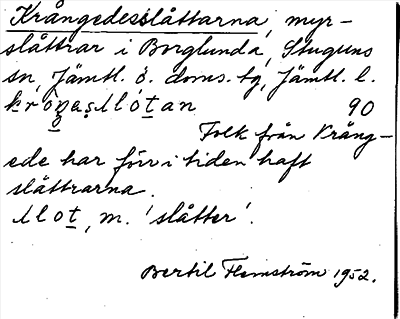 Krångedesslåttarna, myr-
slåttrar i Borglunda, Stuguns
sn, Jämtl. ö. doms. tg, Jämtl. l.
90
Folk från Krång-
ede har förr i tiden haft
slåttrarna.
slot, m. 'slåtter'.
Bertil Flemström 1952.